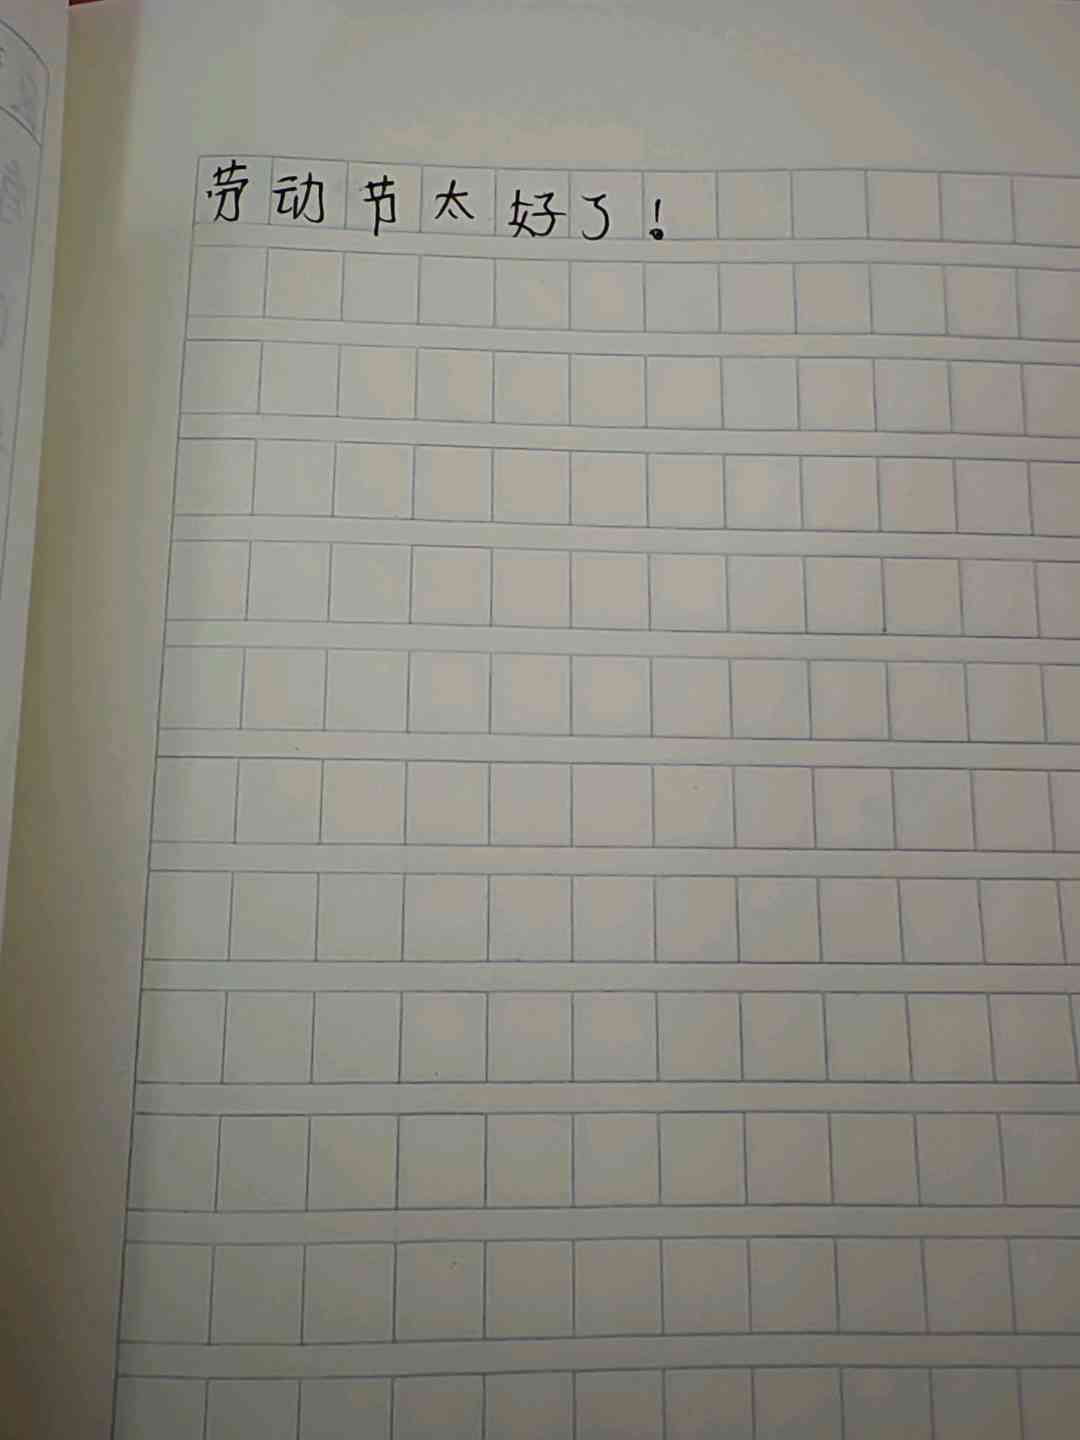 劳动节太好了!